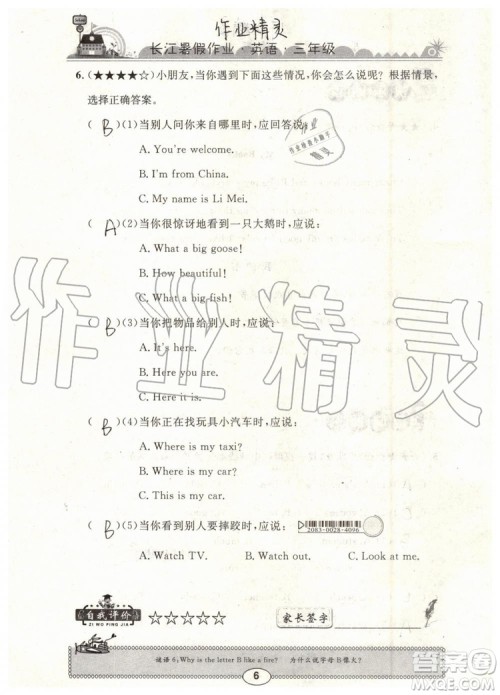 作业精灵
长江暑假作业·英语·三年级
6. (★★★★☆)小朋友,当你遇到下面这些情况,你会怎么说呢? 根据情景,
选择正确答案。
( B )(1)当别人问你来自哪里时,应回答说:
A. You're welcome.
B. I'm from China.
C. My name is Li Mei.
( A )(2)当你很惊讶地看到一只大鹅时,应说:
A. What a big goose!
B. How beautiful!
C. What a big fish!
( B )(3)当你把物品给别人时,应说:
A. It's here.
B. Here it is.
C. Here is.
( B )(4)当你正在找玩具小汽车时,应说:
A. Where is my taxi?
B. Where is my car?
C. This is my car.
( B )(5)当你看到别人要摔跤时,应说:
2083-0028-4096
A. Watch TV. B. Watch out. C. Look at me.
作业精灵
自我评价
ZI WO PING JIA
☆☆☆☆☆
家长签字
谜语 6:Why is the letter B like a fire? 为什么说字母B像火?
6